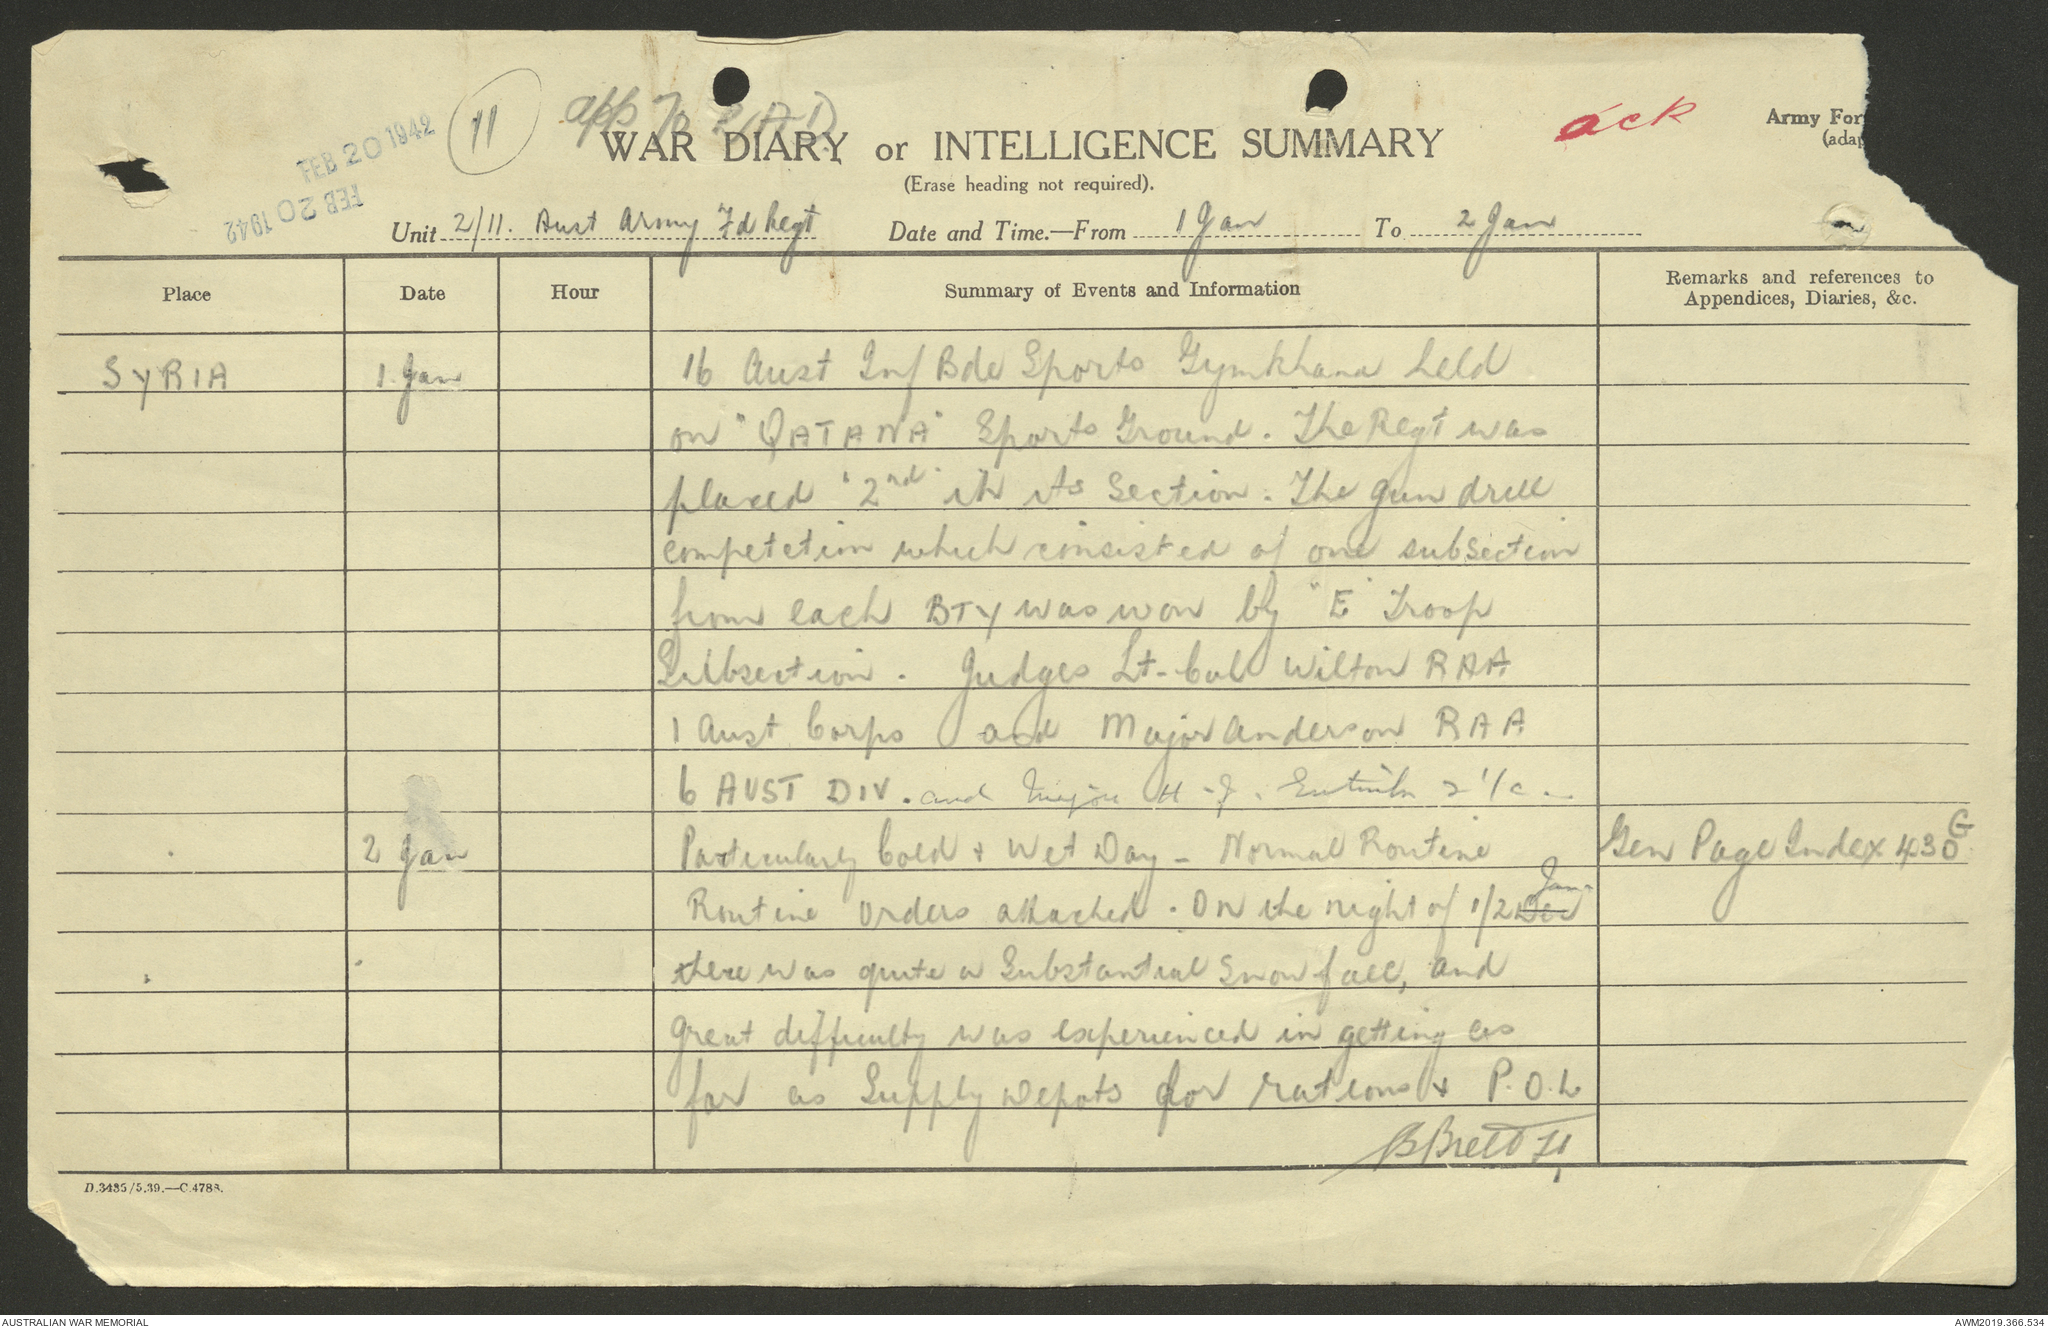 FEB 20 1942
FEB 20 1942
11
app To
ack
WAR DIARY or INTELLIGENCE SUMMARY
Army For
(adap
(Erase heading not required).
Unit 2/11. Aust Army Fd Regt Date and Time.—From 1 Jan To 2 Jan
Place Date Hour Summary of Events and Information Remarks and references to
Appendices, Diaries, &c.
SYRIA 1 Jan 16 Aust Inf Bde Sports Gymkhana held
on "QATANA" Sports Ground. The Regt was
placed "2nd" in its section. The gun drill
competetion which consisted of one subsection
from each BTY was won by "E" Troop
Subsection. Judges Lt-Col Wilton RAA
1 Aust Corps and Major Anderson RAA
6 AUST DIV. and Major H.J. 2 i/c
2 Jan Particularly Cold + Wet Day - Normal Routine Gen Page Index 430 G
Routine orders attached. On the night of 1/2 Dec Jan
there was quite a substantial snow fall, and
great difficulty was experienced in getting as
far as Supply Depots for rations + P.O.L
B Brett Lt
D.3435/5.39.—C.4788.
AUSTRALIAN WAR MEMORIAL
AWM2019.366.534